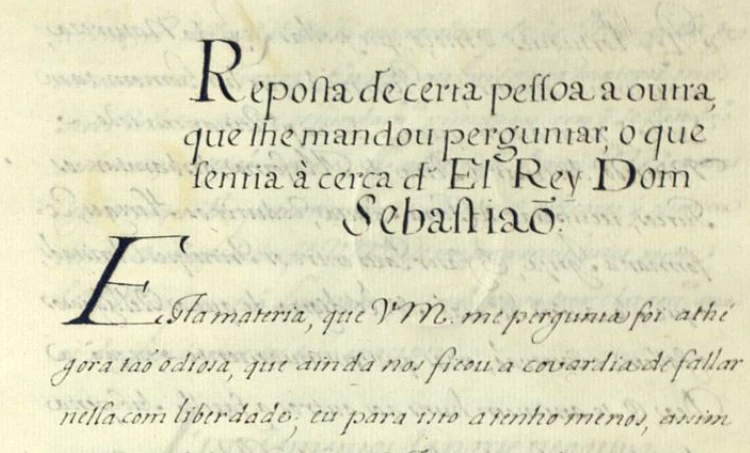 Reposta de certa pessoa a outra,
que lhe mandou perguntar, o que
sentia à cerca d' El Rey Dom
Sebastiaõ.
Esta materia, que VM. me pergunta foi athé
gora taõ odiosa, que ainda nos ficou a covardia de fallar
nella com liberdade; eu para isto a tenho menos, assim